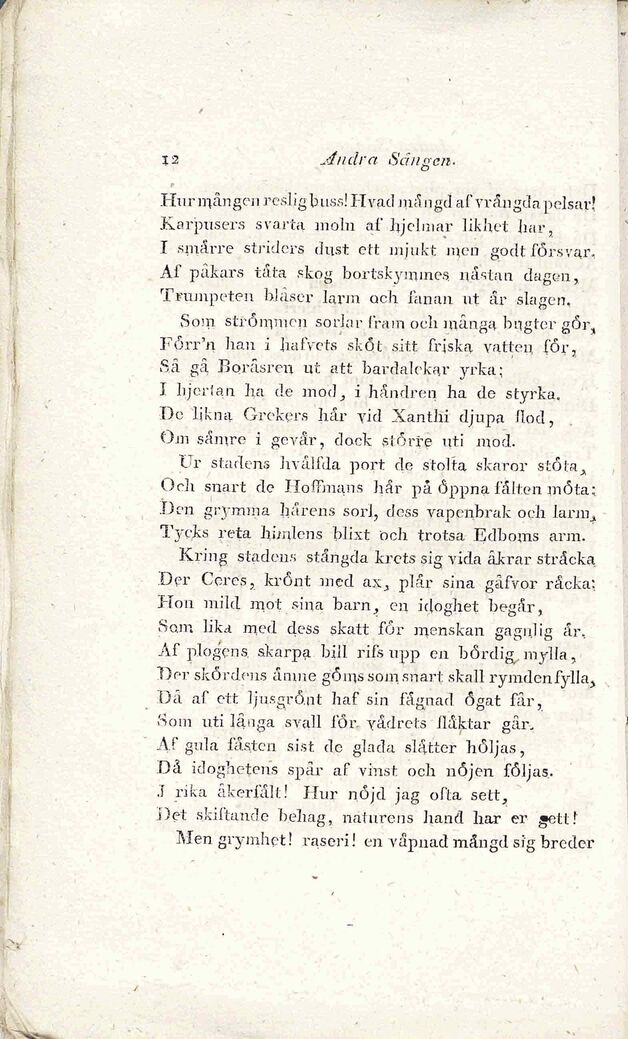 12 Andra Sången.
Hur mången reslig buss! Hvad mångd af vrångda pelsar!
Karpusers svarta moln af hjelmar likhet har,
I smårre striders dust ett mjukt men godt försvar.
Af påkars tåta skog bortskymmes nåstan dagen,
Trumpeten blåser larm och fanan ut år slagen.
Som strömmen sorlar fram och många bugter gör,
Förr'n han i hafvets sköt sitt friska vatten för,
Så gå Boråsren ut att bardalekar yrka;
I hjertan ha de mod, i håndren ha de styrka.
De likna Grekers hår vid Xanthi djupa flod,
Om såmre i gevår, dock större uti mod.
Ur stadens hvålfda port de stolta skaror stöta,
Och snart de Hoffmans hår på öppna fålten möta;
Den grymma hårens sorl, dess vapenbrak och larm,
Tycks reta himlens blixt och trotsa Edboms arm.
Kring stadens stångda krets sig vida åkrar stråcka
Der Ceres, krönt med ax, plår sina gåfvor råcka;
Hon mild mot sina barn, en idoghet begår,
Som lika med dess skatt för menskan gagnlig år.
Af plogens skarpa bill rifs upp en bördig mylla,
Der skördens åmne göms som snart skall rymden fylla,
Då af ett ljusgrönt haf sin fågnad ögat får,
Som uti långa svall för vådrets flåktar går.
Af gula fåsten sist de glada slåtter höljas,
Då idoghetens spår af vinst och nöjen följas.
I rika åkerfålt! Hur nöjd jag ofta sett,
Det skiftande behag, naturens hand har er gett!
Men grymhet! raseri! en våpnad mångd sig breder